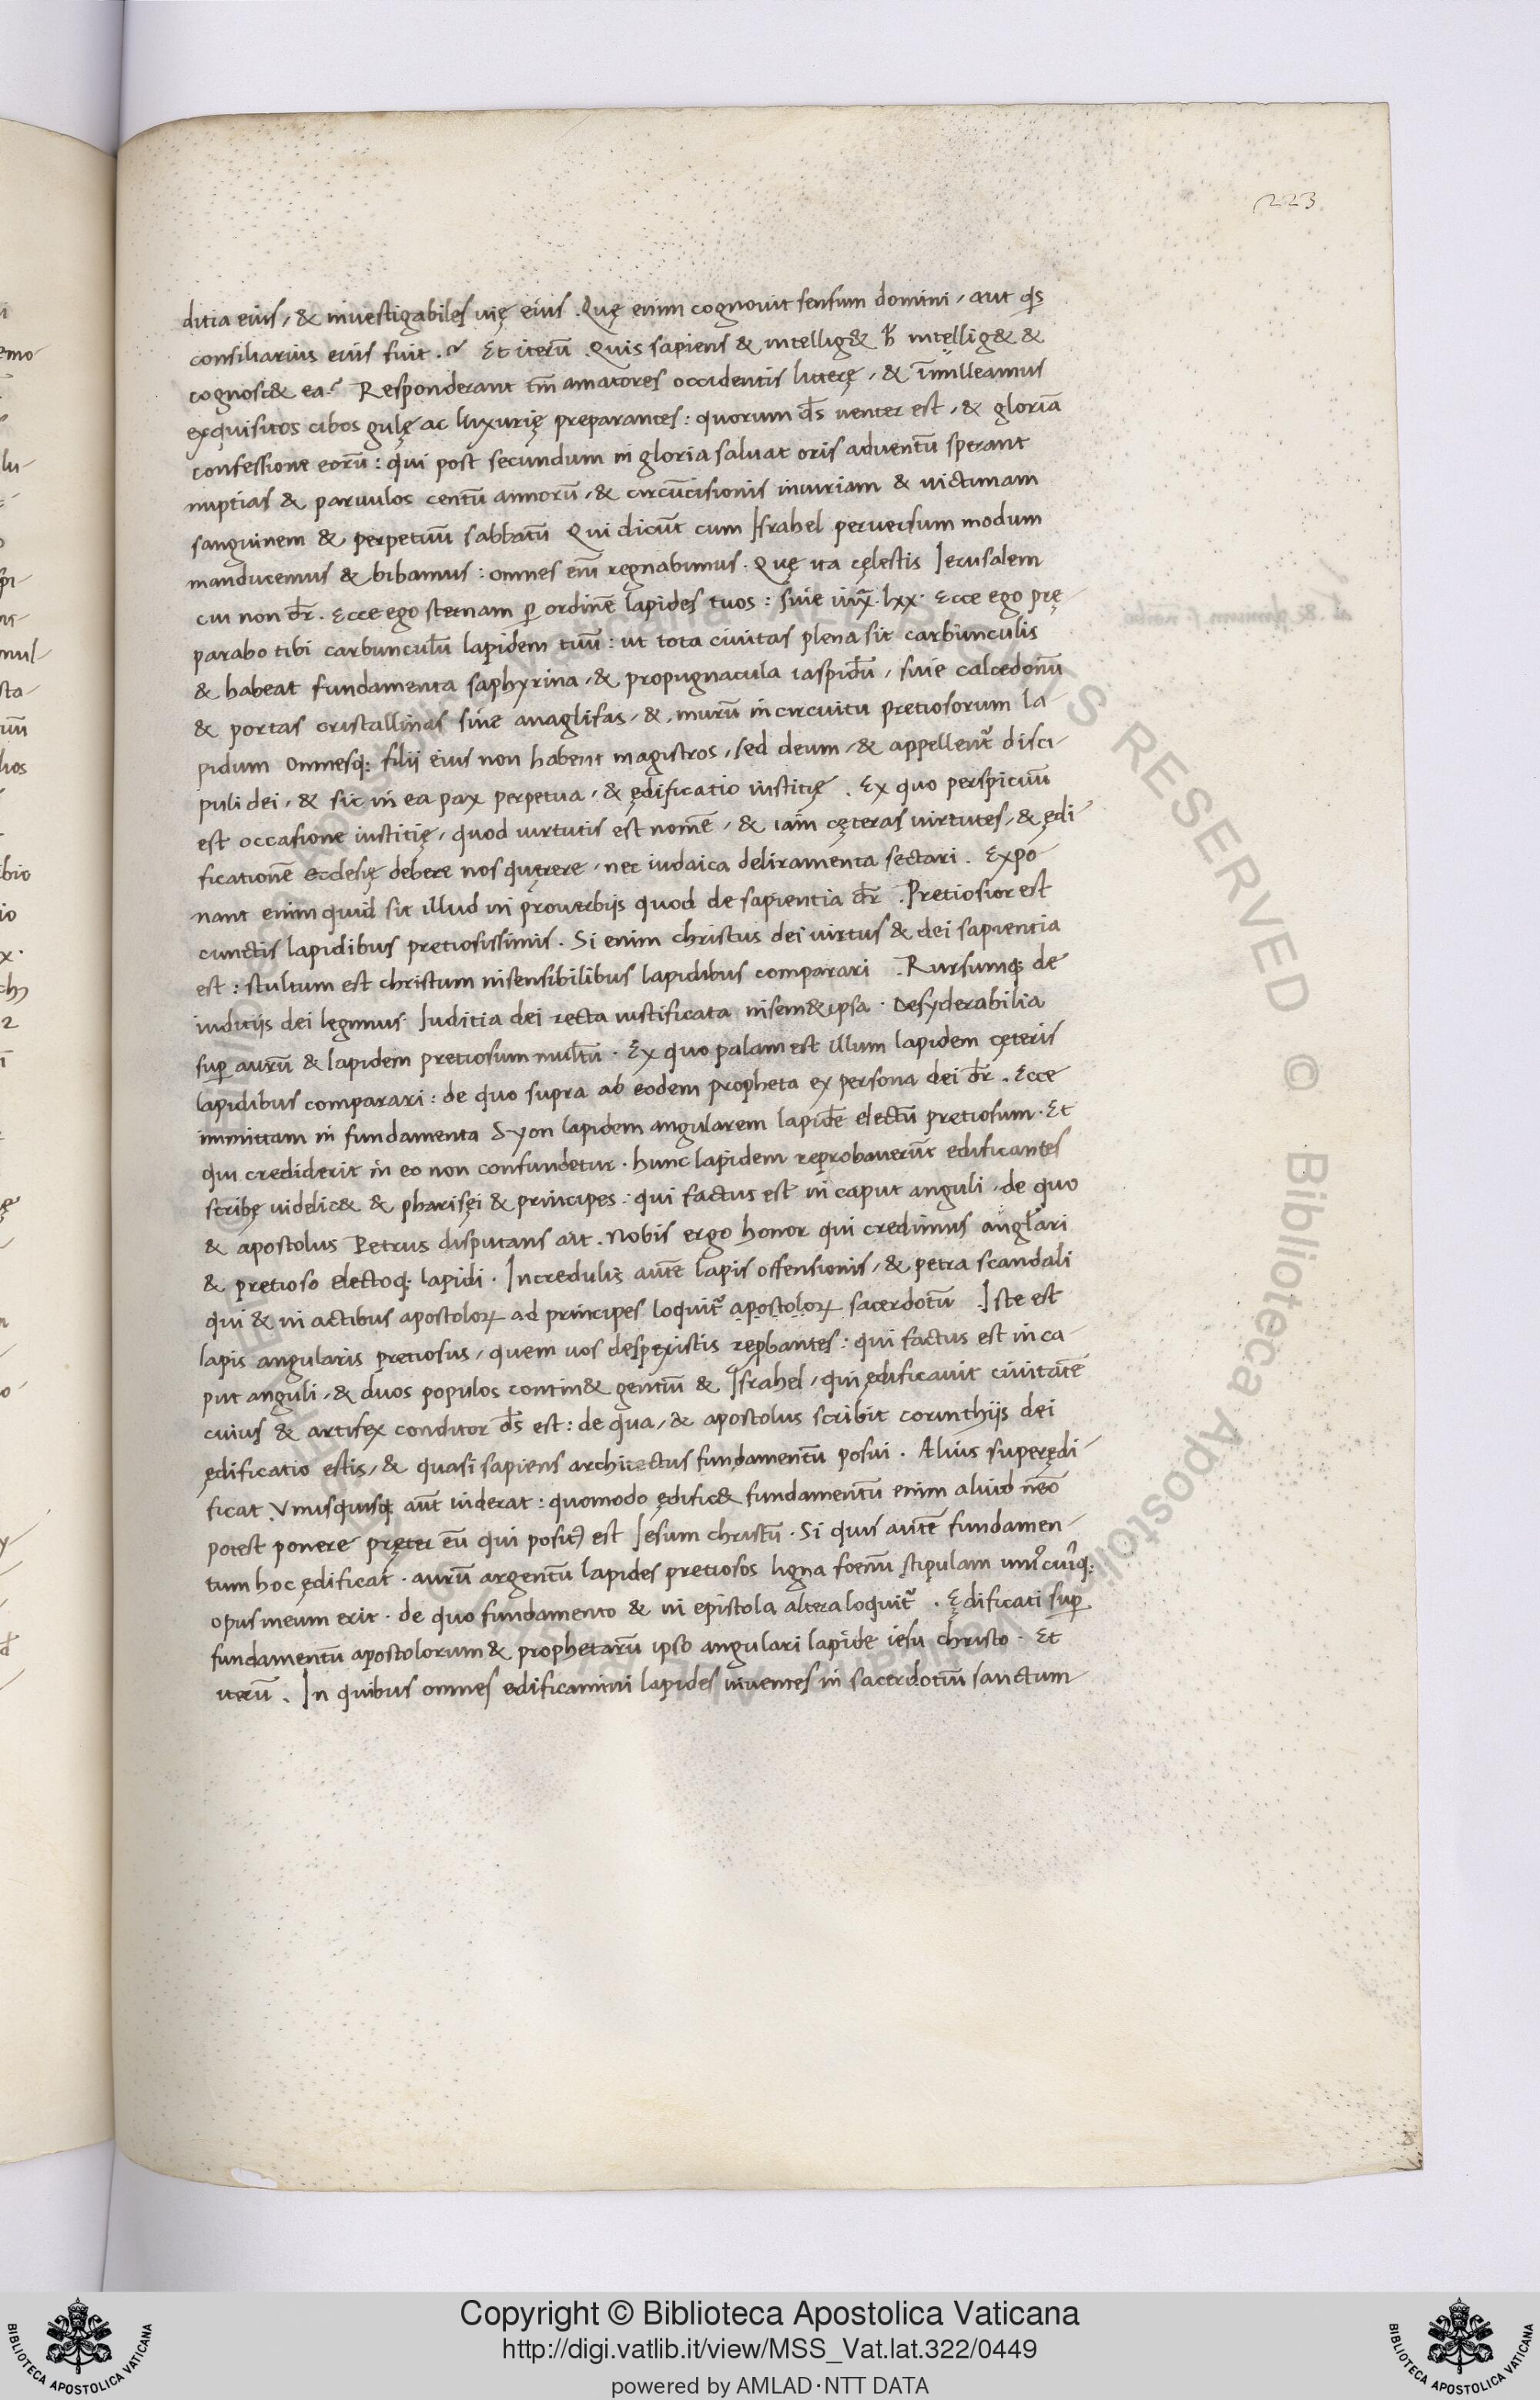 223
ditia eius, & inuestigabiles uię eius. Quę enim cognouit sensum domini, aut qs
consiliarius eius fuit.? Et iterū. Quis sapiens & intellig& h̄ intellig& &
cognosc& ea? Responderant tm̄ amatores occidentis litterę, & ī milleamus
exquisitos cibos gulę ac luxurię preparantes: quorum ds̄ uenter est, & gloria
confessione eorū: qui post secundum in gloria saluat oris aduentū sperant
nuptias & paruulos centū annorū, & circūcisionis iniuriam & uictimam
sanguinem & perpetuū sabbatū Qui dicūt cum Israhel peruersum modum
manducemus & bibamus: omnes eni regnabimus. Quę ita cęlestis Ierusalem
cui non dr̄. Ecce ego sternam p ordinē lapides tuos: siue iuxͣ. lxx. Ecce ego prę-
parabo tibi carbunculū lapidem tuū: ut tota ciuitas plena sit carbunculis
& habeat fundamenta saphyrina, & propugnacula iaspidū, siue calcedoniū
& portas cristallinas siue anaglifas, &, murū in circuitu pretiosorum la-
pidum omnesq: filii eius non habent magistros, sed deum, & appellent᷑ disci-
puli dei, & sit in ea pax perpetua, & ędificatio iustitię. Ex quo perspicuū
est occasione iustitię, quod uirtutis est nomē, & iam cęteras uirtutes, & ędi-
ficationē ecclesię debere nos quęrere, nec iudaica deliramenta sectari. Expo-
nant enim quid sit illud in prouerbijs quod de sapientia dr̄. Pretiosior est
cunctis lapidibus pretiosissimis. Si enim christus dei uirtus & dei sapientia
est: stultum est christum insensibilibus lapidibus comparari. Rursumq; de
iuditijs dei legimus. Iuditia dei recta iustificata insem& ipsa. Desyderabilia
sup aurū & lapidem pretiosum multū. Ex quo palam est illum lapidem cęteris
lapidibus comparari: de quo supra ab eodem propheta ex persona dei dr̄. Ecce
immittam in fundamenta Syon lapidem angularem lapidē electū pretiosum. Et
qui crediderit in eo non confundetur. hunc lapidem reprobauerūt edificantes
scribę uidelic& & pharisęi & principes: qui factus est in caput anguli, de quo
& apostolus Petrus disputans ait. Nobis ergo honor qui credimus angłari
& pretioso electoq; lapidi. Incredulis autē lapis offensionis, & petra scandali
qui & in actibus apostoloꝝ ad principes loquit᷑ apostoloꝝ sacerdotū. Iste est
lapis angularis pretiosus, quem uos despexistis repbantes: qui factus est in ca-
put anguli, & duos populos contin& gentiū & Israhel, qui ędificauit ciuitatē
cuius & artifex conditor ds̄ est: de qua, & apostolus scribit corinthijs dei
ędificatio estis, & quasi sapiens architectus fundamentū posui. Alius superędi-
ficat. Vnusquisq; aūt uiderat: quomodo ędific& fundamentū enim aliud nēo
potest ponere pręter eū qui posit᷒ est Iesum christū. Si quis autē fundamen-
tum hoc ędificat. aurū argentū lapides pretiosos ligna foenū stipulam uni᷒cui᷒q:
opus meum erit. de quo fundamento & in epistola altera loquit᷑. Ędificati sup
fundamentū apostolorum & prophetarū ipso angulari lapide iesu christo. Et
iterū. In quibus omnes edificamini lapides uiuentes in sacerdotiū sanctum
Copyright © Biblioteca Apostolica Vaticana
http://digi.vatlib.it/view/MSS_Vat.lat.322/0449
powered by AMLAD·NTT DATA